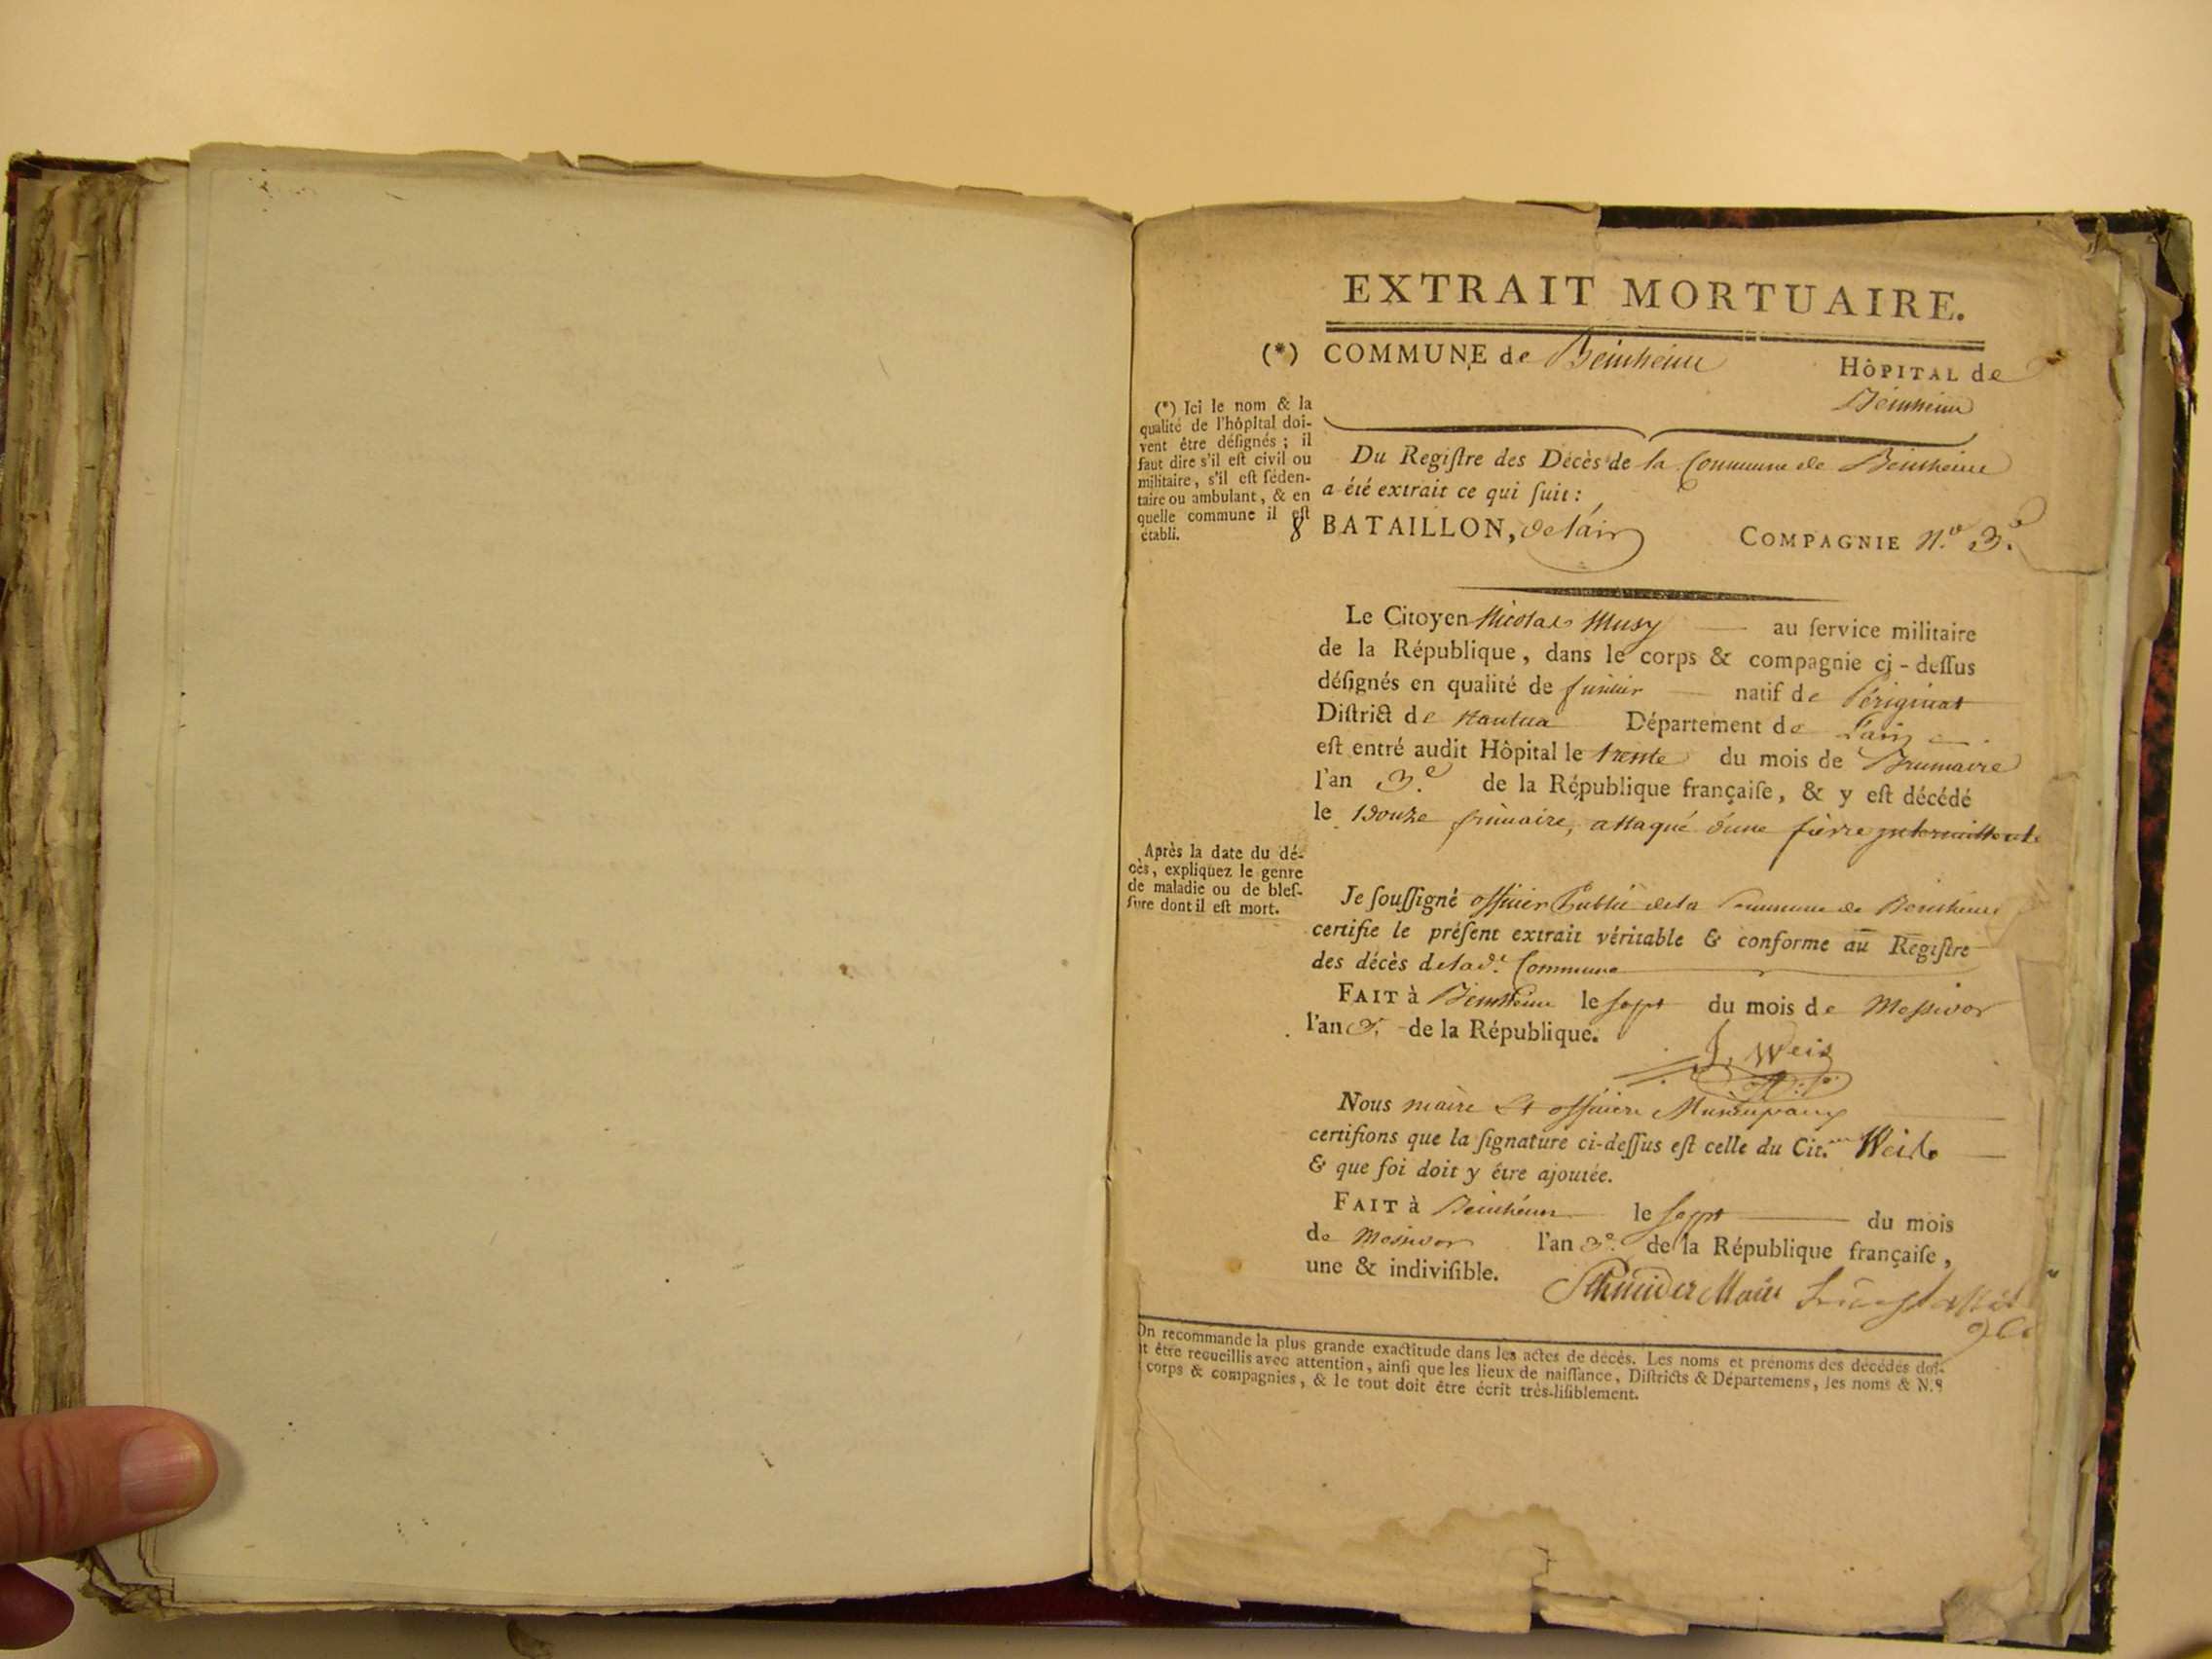 EXTRAIT MORTUAIRE.
(*) COMMUNE de Beinheim
HÔPITAL de
Beinheim
(*) Ici le nom & la
qualité de l'hôpital doi-
vent être déſignés ; il
faut dire s'il eſt civil ou
militaire, s'il eſt ſéden-
taire ou ambulant, & en
quelle commune il eſt
établi.
Du Regiſtre des Décès de la Commune de Beinheim
a été extrait ce qui ſuit :
8 BATAILLON, de l'ain COMPAGNIE N.º 3.e
Le Citoyen Nicolas Musy au ſervice militaire
de la République, dans le corps & compagnie cj-deſſus
déſignés en qualité de fusilier natif de Périgniat
Diſtrict de Nantua Département de L'ain
eſt entré audit Hôpital le trente du mois de Brumaire
l'an 3.e de la République françaiſe, & y eſt décédé
le Douze frimaire, attaqué d'une fièvre intermittente
Après la date du dé-
cès, expliquez le genre
de maladie ou de bleſ-
ſure dont il eſt mort.
Je ſouſſigné officier Public de la Commune de Beinheim
certifie le préſent extrait véritable & conforme au Regiſtre
des décès de la d.e Commune
FAIT à Beinheim le sept du mois de Messidor
l'an 3. de la République.
J. Weis
Nous maire et officiers Municipaux
certifions que la ſignature ci-deſſus eſt celle du Cit. Weis
& que foi doit y être ajoutée.
FAIT à Beinheim le sept du mois
de Messidor l'an 3e. de la République françaiſe,
une & indiviſible.
Schneider Maire
On recommande la plus grande exactitude dans les actes de décès. Les noms et prénoms des décédés doi-
t être recueillis avec attention, ainſi que les lieux de naiſſance, Diſtricts & Départemens, les noms & N.º
corps & compagnies, & le tout doit être écrit très-liſiblement.